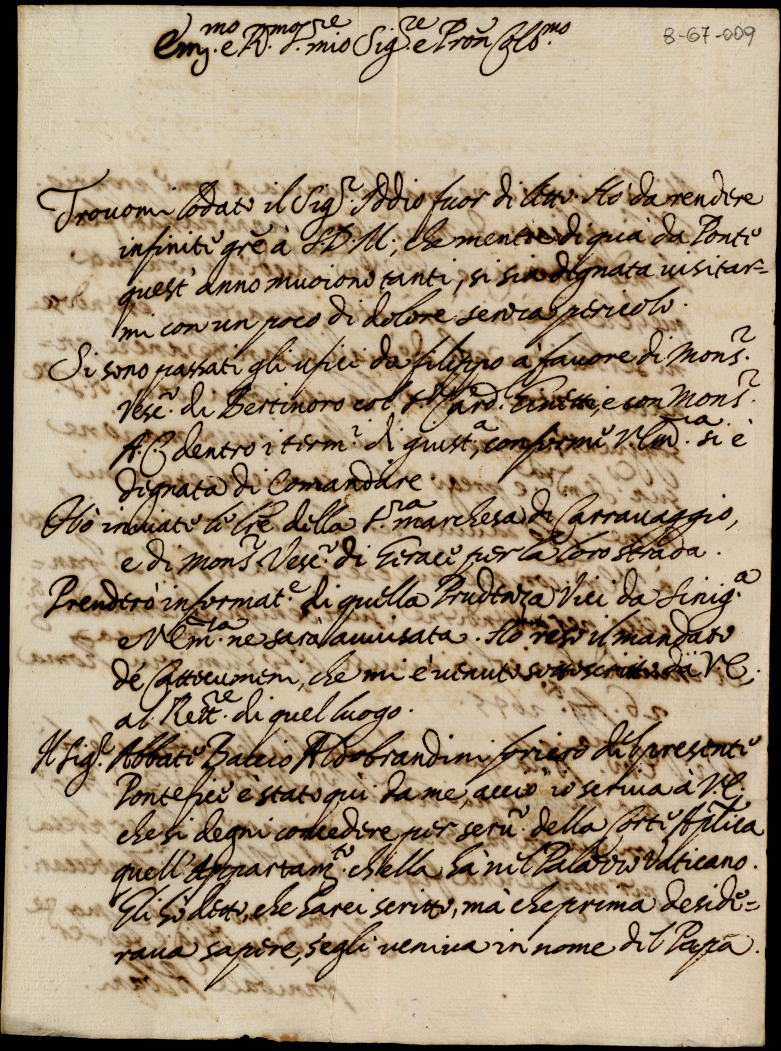 8-67-009
Em.mo e R.mo S.re mio Sig.re e Pron Col.mo
Trovomi lodato il Sig.r Iddio fuor di letto. Hò da rendere
infinite gre à S D M; che mentre di quà da Ponte
quest' anno muoiono tanti, si sia degnata visitar=
mi con un poco di dolore senza pericolo.
Si sono passati gli ufici da filippo a favore di Mons.r
Vesc.o di Bertinoro col S.r Card. Ginetti, e con Mons.r
A. C. dentro i term.i di giust.a, conforme V. Em.a si è
degnata di Comandare
Hò inviate le lre della S.ra Marchesa di Carravaggio,
e di Mons.r Vesc.o di Gerace per la loro strada.
Prenderò informat.e di quella Prudenza Vici da Sinig.a
e V Em.a ne sarà avvisata. Hò reso il mandato
dé Cattecumeni, che mi è venuto sottoscritto da V. E.
al Rett.re di quel luogo.
Il Sig.r Abbate Baccio Aldobrandini foriero del presente
Pontefice è stato quì da me, acciò io scriva à V. E.
che si degni concedere per serv.o della Corte Aplica
quell' Appartam.to ch'ella hà nel Palazzo Vaticano.
Gli hò detto, che harei scritto, mà che prima deside=
rava sapere, s'egli veniva in nome del Papa.